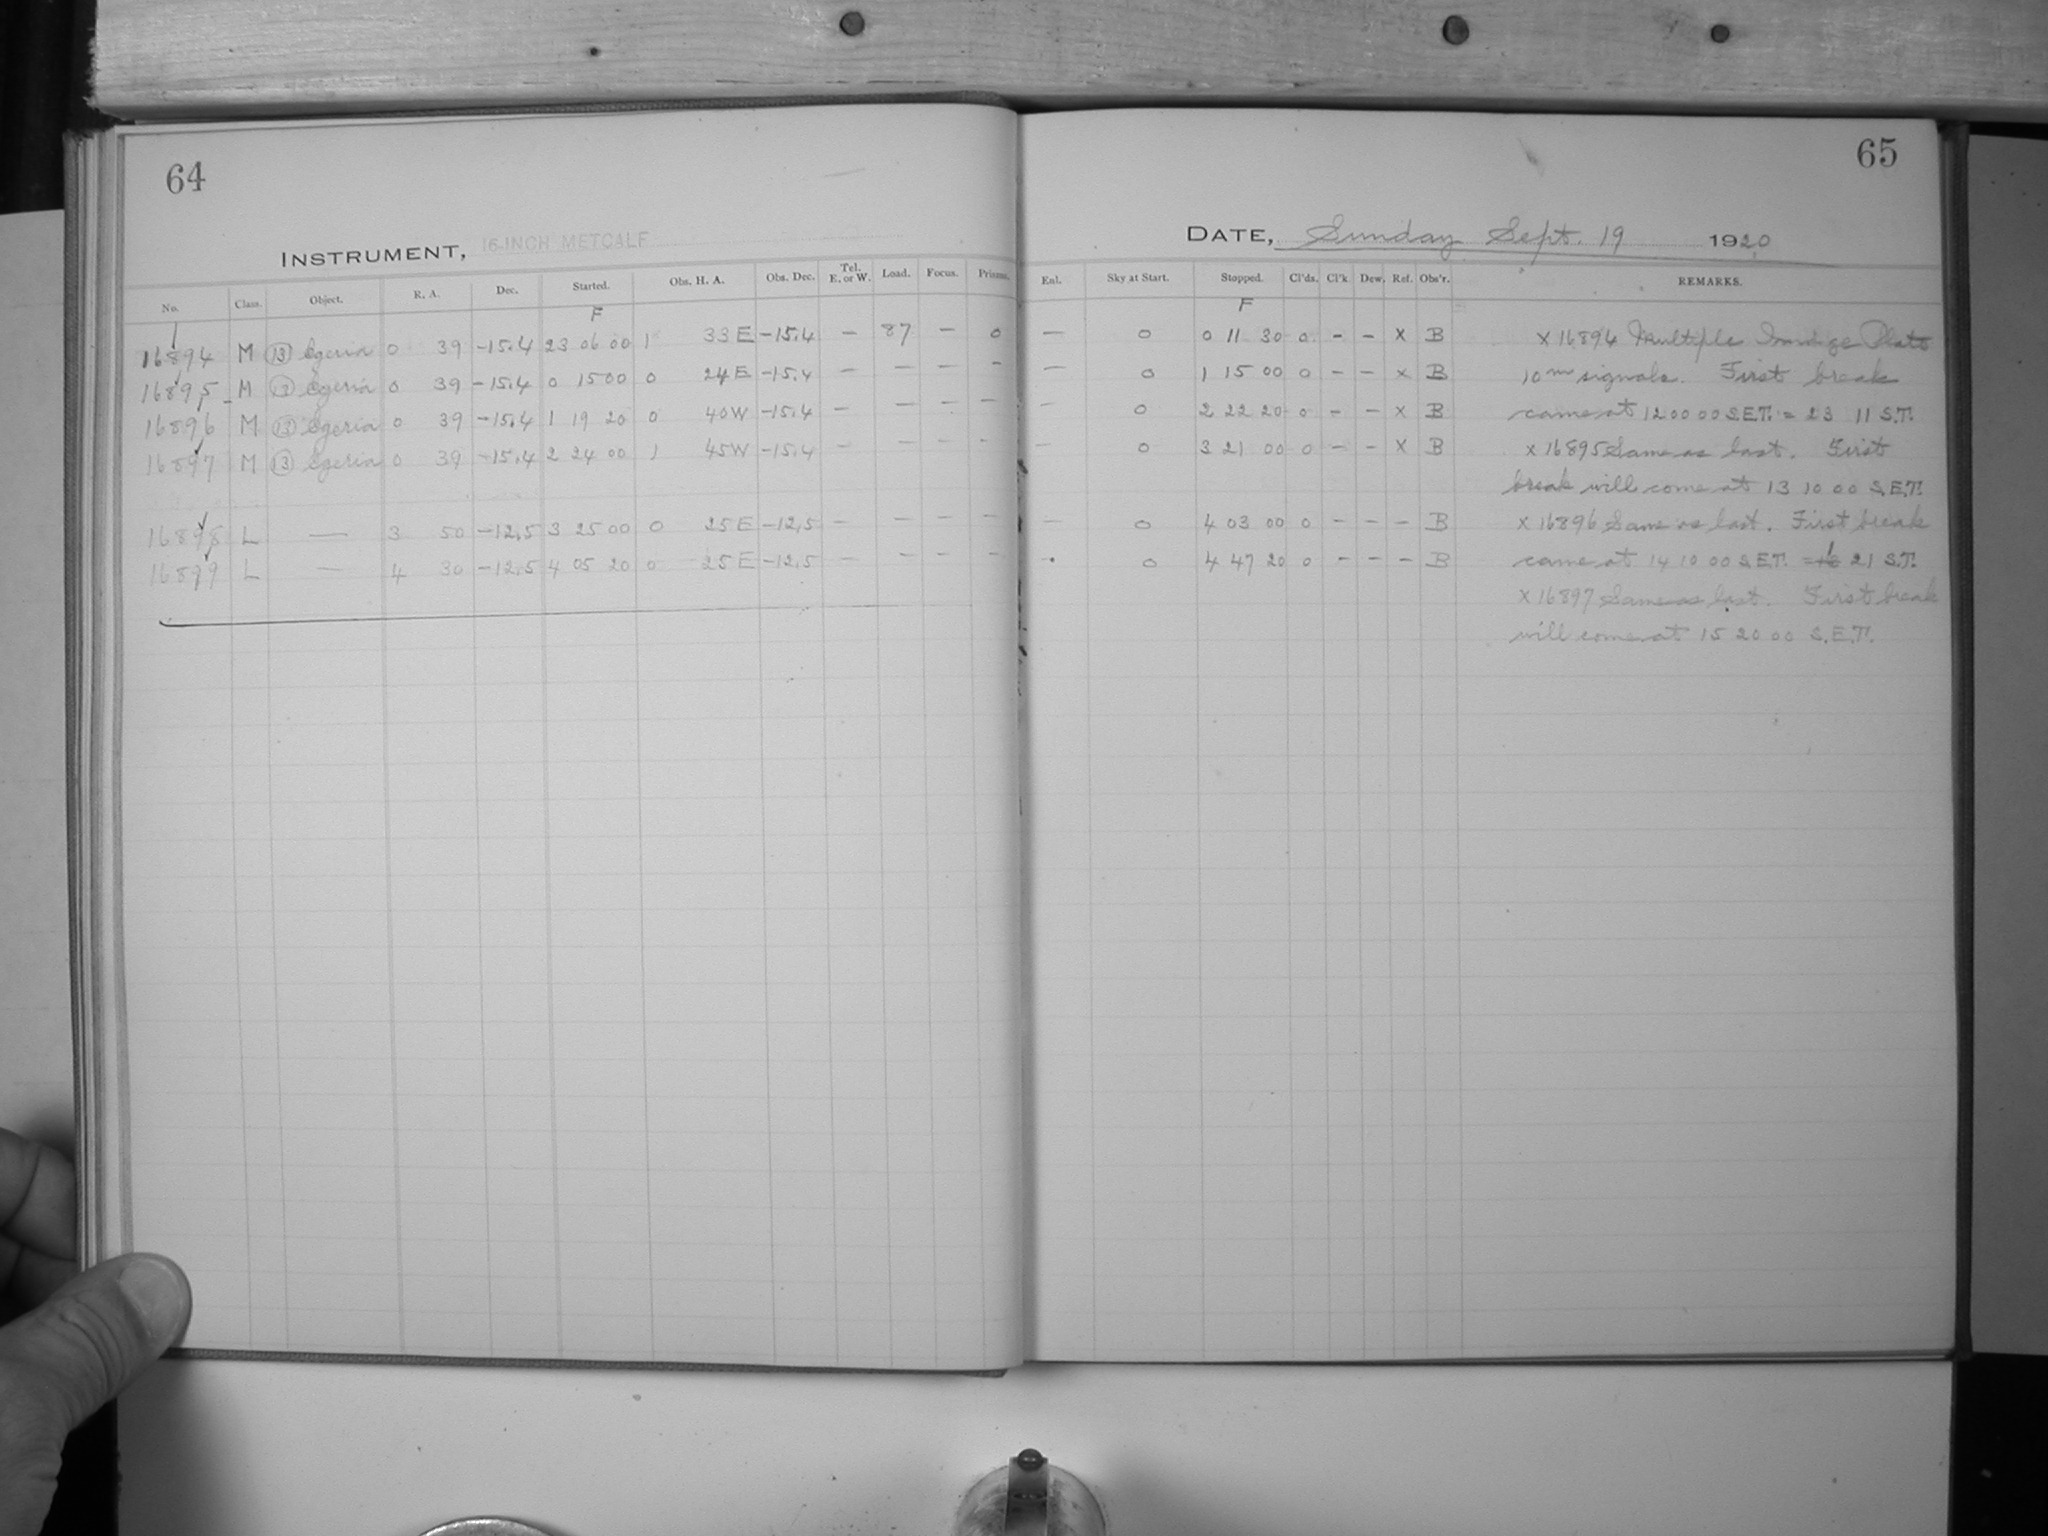 64
INSTRUMENT, 16-INCH METCALF
No. Class. Object. R. A. Dec. Started. Obs. H. A. Obs. Dec. Tel. E. or W. Load. Focus. Prisms.
F
16894 M (13) Egeria 0 39 -15.4 23 06 00 1 33 E -15.4 — 87 — 0
16895 M (13) Egeria 0 39 -15.4 0 15 00 0 24 E -15.4 — — — —
16896 M (13) Egeria 0 39 -15.4 1 19 20 0 40 W -15.4 — — — —
16897 M (13) Egeria 0 39 -15.4 2 24 00 1 45 W -15.4 — — — —
16898 L — 3 50 -12.5 3 25 00 0 25 E -12.5 — — — —
16899 L — 4 30 -12.5 4 05 20 0 25 E -12.5 — — — —
65
DATE, Sunday Sept. 19 1920
Enl. Sky at Start. Stopped. Cl'ds. Cl'k Dew. Ref. Obs'r. REMARKS.
F
— 0 0 11 30 0 - - X B X 16894 Multiple Image Plate
— 0 1 15 00 0 - - X B 10m signals. First break
— 0 2 22 20 0 - - X B came at 12 00 00 S.E.T. = 23 11 S.T.
— 0 3 21 00 0 - - X B X 16895 Same as last. First
break will come at 13 10 00 S.E.T.
— 0 4 03 00 0 - - - B X 16896 Same as last. First break
0 4 47 20 0 - - - B came at 14 10 00 S.E.T. = 21 S.T.
X 16897 Same as last. First break
will come at 15 20 00 S.E.T.